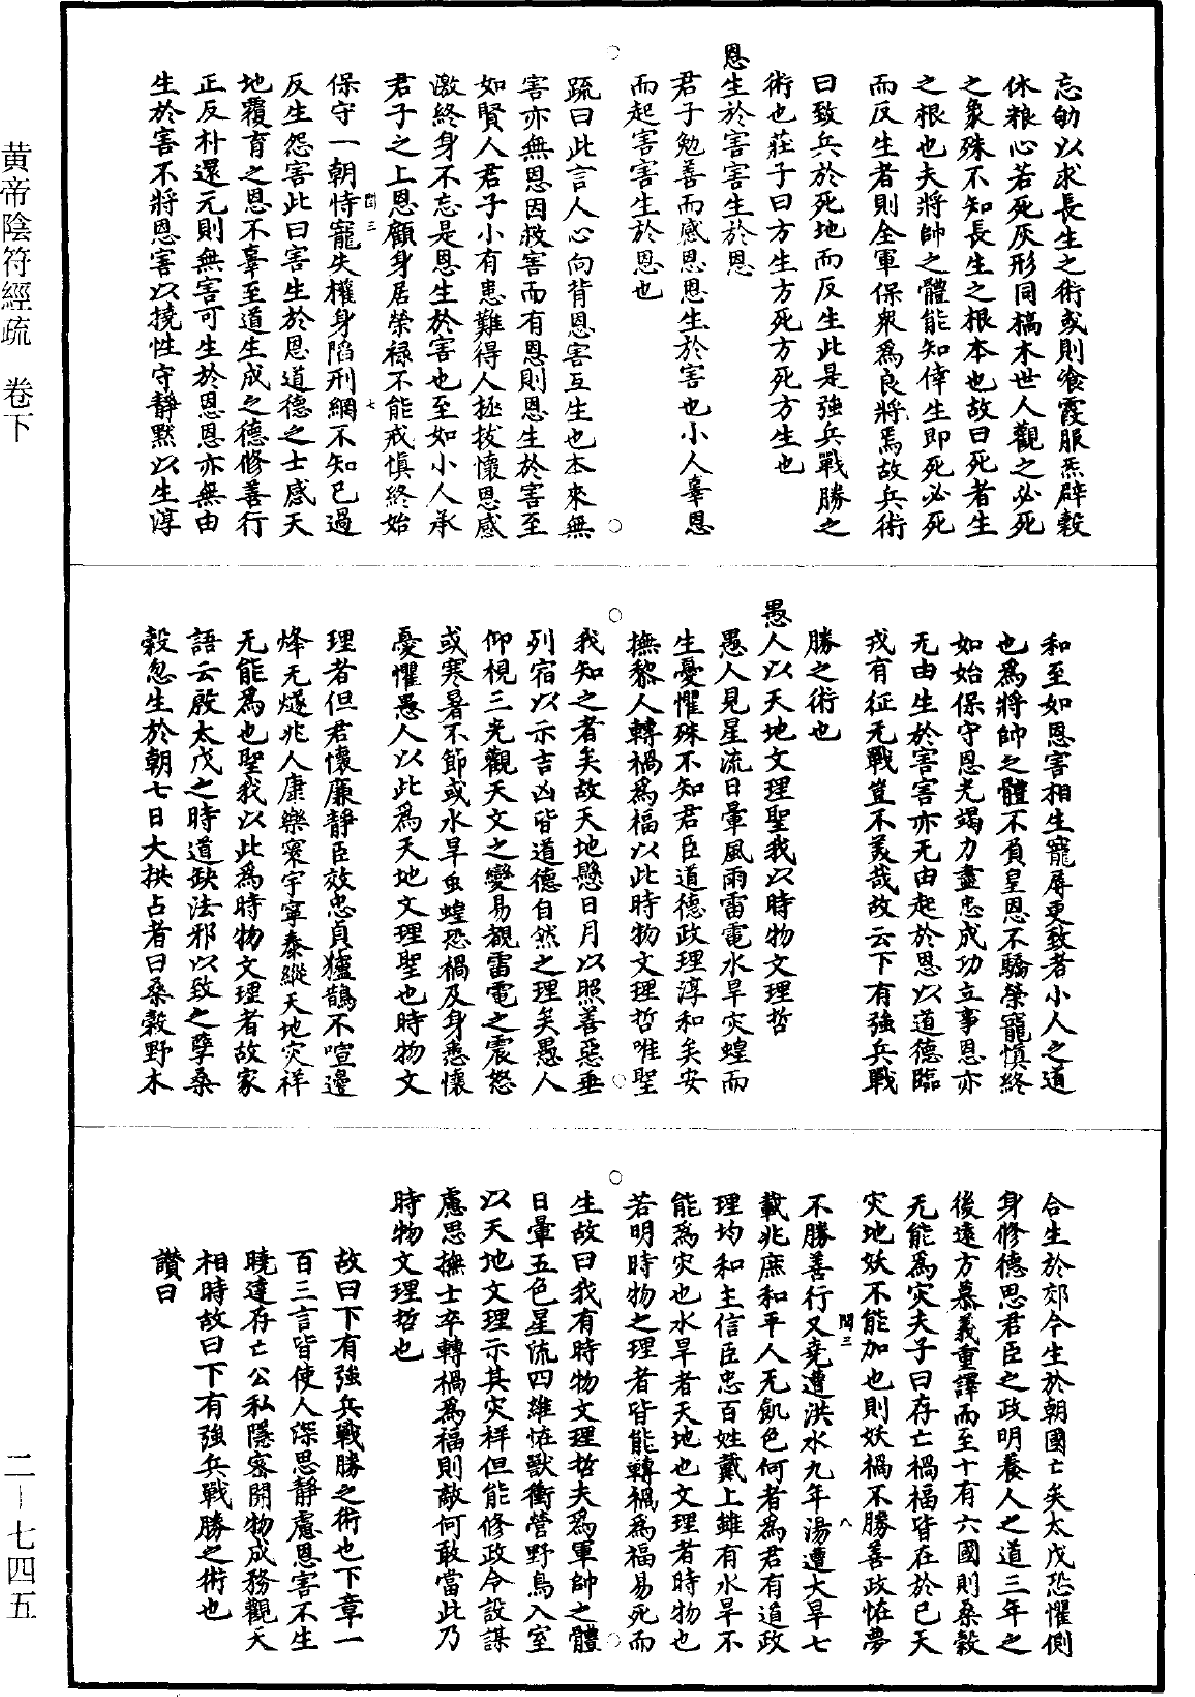 黄帝陰符經疏 卷下
忘飢以求長生之術或則飡霞服炁辟穀
休粮心若死灰形同槁木世人觀之必死
之象殊不知長生之根本也故曰死者生
之根也夫將帥之體能知倖生即死必死
而反生者則全軍保衆爲良將焉故兵術
曰致兵於死地而反生此是強兵戰勝之
術也莊子曰方生方死方死方生也
恩生於害害生於恩
君子勉善而感恩恩生於害也小人辜恩
而起害害生於恩也
疏曰此言人心向背恩害互生也本來無
害亦無恩因救害而有恩則恩生於害至
如賢人君子小有患難得人拯拔懷恩感
激終身不忘是恩生於害也至如小人承
君子之上恩顧身居榮禄不能戒慎終始
閏三 七
保守一朝恃寵失權身陷刑網不知已過
反生怨害此曰害生於恩道德之士感天
地覆育之恩不辜至道生成之德修善行
正反朴還元則無害可生於恩恩亦無由
生於害不將恩害以撓性守靜默以生淳
和至如恩害相生寵辱更致者小人之道
也爲將帥之體不負皇恩不驕榮寵慎終
如始保守恩光竭力盡忠成功立事恩亦
无由生於害害亦无由起於恩以道德臨
戎有征无戰豈不美哉故云下有強兵戰
勝之術也
愚人以天地文理聖我以時物文理哲
愚人見星流日暈風雨雷電水旱灾蝗而
生憂懼殊不知君臣道德政理淳和矣安
撫黎人轉禍爲福以此時物文理哲唯聖
我知之者矣故天地懸日月以照善惡垂
列宿以示吉凶皆道德自然之理矣愚人
仰視三光觀天文之變易覩雷電之震怒
或寒暑不節或水旱虫蝗恐禍及身悉懷
憂懼愚人以此爲天地文理聖也時物文
理者但君懷廉靜臣效忠貞獹鵲不喧邊
烽无燧兆人康樂寰宇寧泰縱天地灾祥
无能爲也聖我以此爲時物文理者故家
語云殷太戊之時道缺法邪以致之孽桑
穀忽生於朝七日大拱占者曰桑穀野木
合生於郊今生於朝國亡矣太戊恐懼側
身修德思君臣之政明養人之道三年之
後遠方慕義重譯而至十有六國則桑穀
无能爲灾夫子曰存亡禍福皆在於已天
灾地妖不能加也則妖禍不勝善政恠夢
閏三 八
不勝善行又堯遭洪水九年湯遭大旱七
載兆庶和平人无飢色何者爲君有道政
理均和主信臣忠百姓戴上雖有水旱不
能爲灾也水旱者天地也文理者時物也
若明時物之理者皆能轉禍爲福易死而
生故曰我有時物文理哲夫爲軍帥之體
日暈五色星流四雄恠獸衝營野鳥入室
以天地文理示其灾祥但能修政令設謀
慮思撫士卒轉禍爲福則敵何敢當此乃
時物文理哲也
故曰下有強兵戰勝之術也下章一
百三言皆使人深思靜慮恩害不生
曉達存亡公私隱密開物成務觀天
相時故曰下有強兵戰勝之術也
讚曰
二－七四五